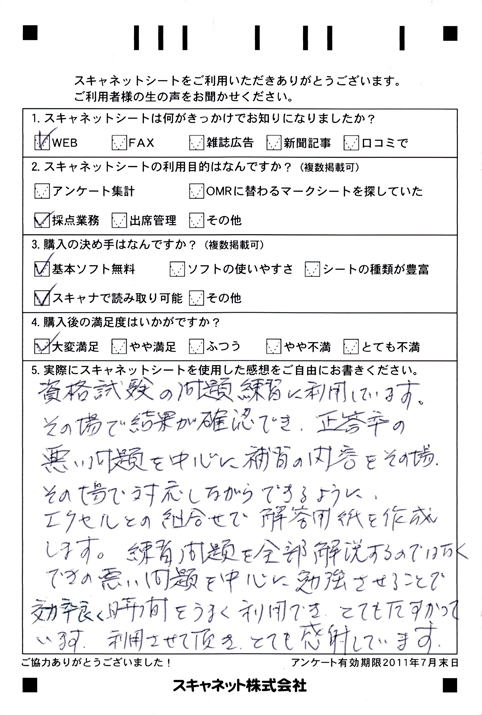 スキャネットシートをご利用いただきありがとうございます。
ご利用者様の生の声をお聞かせください。
1. スキャネットシートは何がきっかけでお知りになりましたか?
WEB FAX 雑誌広告 新聞記事 口コミで
2. スキャネットシートの利用目的はなんですか?(複数掲載可)
アンケート集計 OMRに替わるマークシートを探していた
採点業務 出席管理 その他
3. 購入の決め手はなんですか?(複数掲載可)
基本ソフト無料 ソフトの使いやすさ シートの種類が豊富
スキャナで読み取り可能 その他
4. 購入後の満足度はいかがですか?
大変満足 やや満足 ふつう やや不満 とても不満
5. 実際にスキャネットシートを使用した感想をご自由にお書きください。
資格試験の問題練習に利用しています。
その場で結果が確認でき、正答率の
悪い問題を中心に補習の内容をその場、
その場で対応しながらできるように、
エクセルとの組合せで解答用紙を作成
します。練習問題を全部解説するのではなく
できの悪い問題を中心に勉強させることで
効率良く時間をうまく利用でき、とても助かって
います。利用させて頂き、とても感射しています。
ご協力ありがとうございました! アンケート有効期限2011年7月末日
スキャネット株式会社